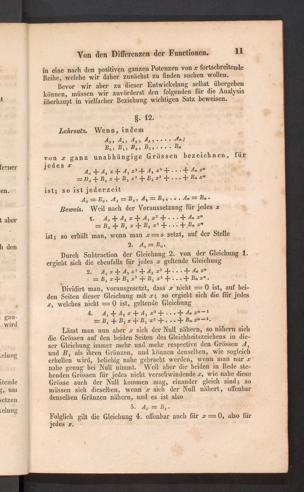 Von den Differenzen der Functionen. 11
in eine nach den positiven ganzen Potenzen von x fortschreitende
Reihe, welche wir daher zunächst zu finden suchen wollen.
Bevor wir aber zu dieser Entwickelung selbst übergehen
können, müssen wir zuvörderst den folgenden für die Analysis
überhaupt in vielfacher Beziehung wichtigen Satz beweisen.
§. 12.
Lehrsatz. Wenn, indem
A₀, A₁, A₂, A₃, .... Aₙ;
B₀, B₁, B₂, B₃, .... Bₙ
von x ganz unabhängige Grössen bezeichnen, für
jedes x
A₀ + A₁ x + A₂ x² + .... + Aₙ xⁿ
= B₀ + B₁ x + B₂ x² + .... + Bₙ xⁿ
ist; so ist jederzeit
A₀ = B₀, A₁ = B₁, A₂ = B₂, .... Aₙ = Bₙ.
Beweis. Weil nach der Voraussetzung für jedes x
1. A₀ + A₁ x + A₂ x² + .... + Aₙ xⁿ
= B₀ + B₁ x + B₂ x² + .... + Bₙ xⁿ
ist; so erhält man, wenn man x = o setzt, auf der Stelle
2. A₀ = B₀.
Durch Subtraction der Gleichung 2. von der Gleichung 1.
ergiebt sich die ebenfalls für jedes x geltende Gleichung
A₁ x + A₂ x² + A₃ x³ + .... + Aₙ xⁿ
= B₁ x + B₂ x² + B₃ x³ + .... + Bₙ xⁿ.
Dividirt man, vorausgesetzt, dass x nicht = 0 ist, auf bei-
den Seiten dieser Gleichung mit x; so ergiebt sich die für jedes
x, welches nicht = 0 ist, geltende Gleichung
4. A₁ + A₂ x + A₃ x² + .... + Aₙ xⁿ⁻¹
= B₁ + B₂ x + B₃ x² + .... + Bₙ xⁿ⁻¹.
Lässt man nun aber x sich der Null nähern, so nähern sich
die Grössen auf den beiden Seiten des Gleichheitszeichens in die-
ser Gleichung immer mehr und mehr respective den Grössen A₁
und B₁ als ihren Gränzen, und können denselben, wie sogleich
erhellen wird, beliebig nahe gebracht werden, wenn man nur x
nahe genug bei Null nimmt. Weil aber die beiden in Rede ste-
henden Grössen für jedes nicht verschwindende x, wie nahe diese
Grösse auch der Null kommen mag, einander gleich sind; so
müssen sich dieselben, wenn x sich der Null nähert, offenbar
denselben Gränzen nähern, und es ist also
5. A₁ = B₁.
Folglich gilt die Gleichung 4. offenbar auch für x = 0, also für
jedes x.